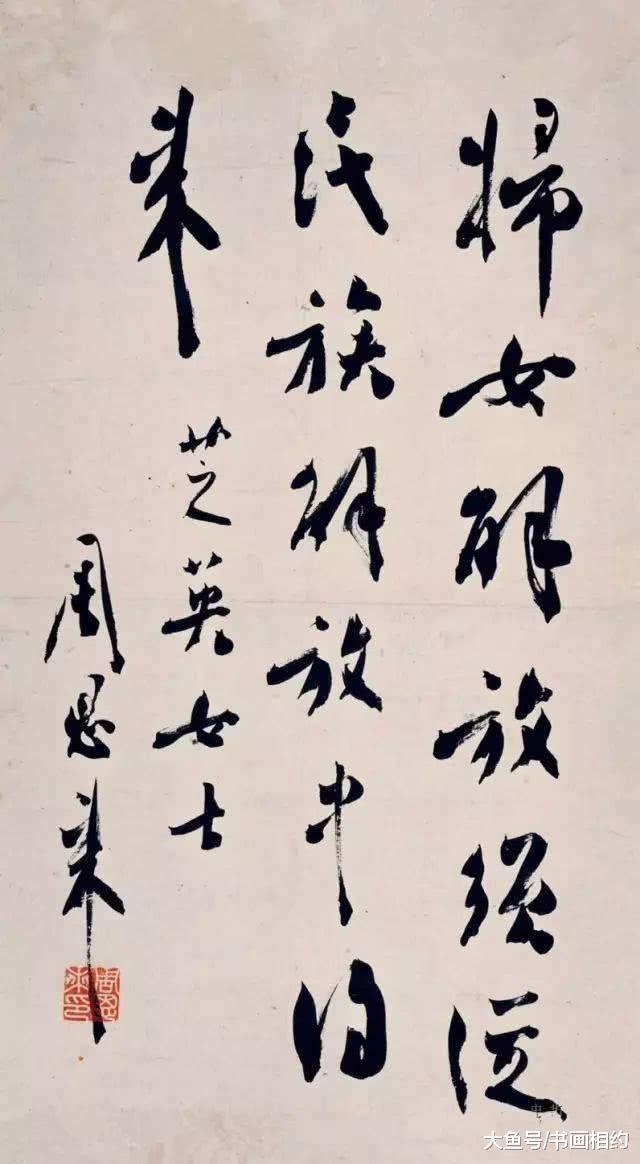 婦女解放須從
民族解放中得
来
芝英女士
周恩来
周恩來印
大鱼号/书画相约